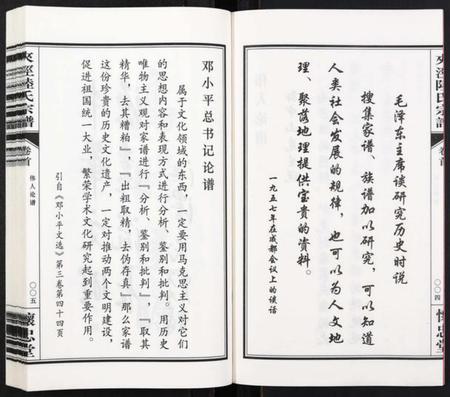 毛泽东主席谈研究历史时说
搜集家谱、族谱加以研究，可以知道
人类社会发展的规律，也可以为人文地
理、聚落地理提供宝贵的资料。
一九五七年在成都会议上的谈话
夹泾陆氏宗谱
卷首
〇〇四
怀忠堂
邓小平总书记论谱
属于文化领域的东西，一定要用马克思主义对它们
的思想内容和表现方式进行分析、鉴别和批判。用历史
唯物主义观对家谱进行“分析、鉴别和批判”，“取其
精华，去其糟粕”，“出租取精，去伪存真”那么家谱
这份珍贵的历史文化遗产，一定对推动两个文明建设，
促进祖国统一大业，繁荣学术文化研究起到重要作用。
引自《邓小平文选》第三卷第四十四页
夾涇陸氏宗譜
卷首
伟人论谱
〇〇五
懷忠堂